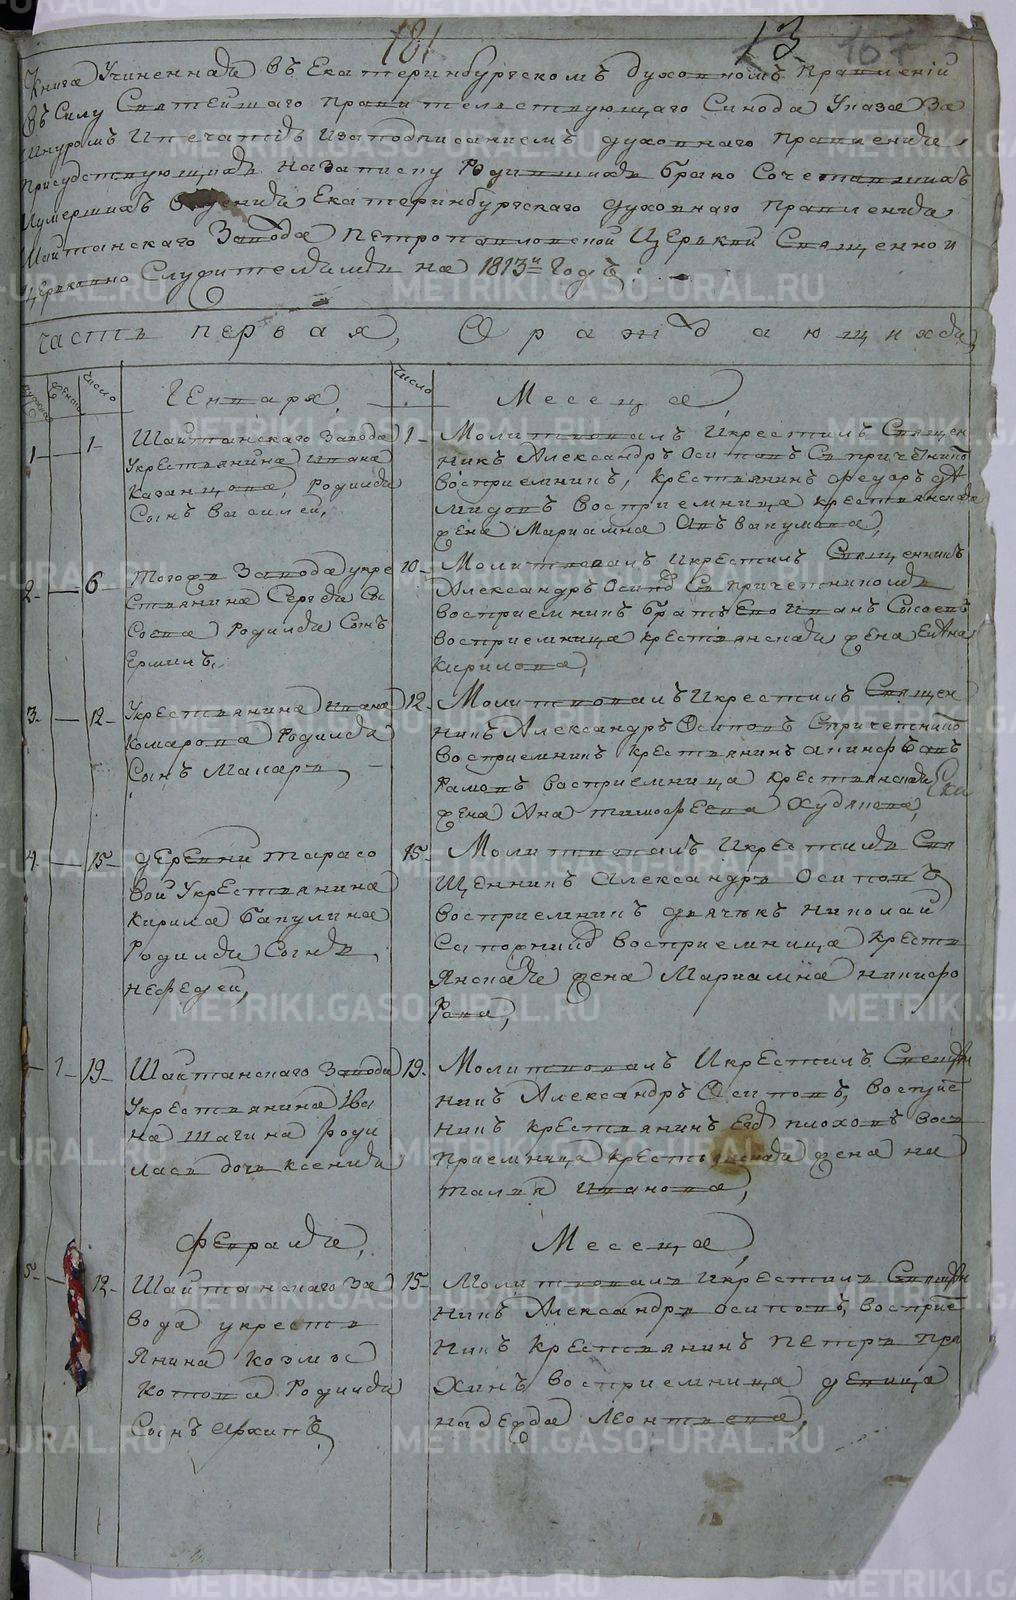 181
13 167
Книга Учиненная въ Екатеринбургскомъ духовномъ Правленіи
Въ Силу Святейшаго правительствующаго Синода Указа за
Шнуромъ Ипечатію Изаподписаниемъ духовнаго правления
присудствующихъ Назаписку Родившихъ брако Сочетавшихъ
Иумершихъ Екатеринбургскаго духовнаго правления
Шайтанскаго Завода Петропавловской Церкви Священно и
Церковно Служителями на 1813й Годъ
часть первая, О раждающихся,
число
число
Генваря,
Месеца,
1 1
Шайтанскаго Завода
Укрестьянина Ивана
Казанцова, Родился
Сынъ Василей,
1
Молитвовалъ Икрестилъ Священ
никъ Александръ Осиповъ Спричетники
восприемникъ, крестьянинъ Федоръ
восприемница крестьянская
жена Мариамна
2 6
Тогожъ Завода укре
стьянина Сергея Сы
соева Родился Сынъ
Ермилъ,
10
Молитвовалъ Икрестилъ Священникъ
Александръ Осиповъ Спричетникомъ
восприемникъ братъ Ево Иванъ Сысоевъ
восприемница крестьянская жена
Кирилова,
3 12
Укрестьянина Ивана
Комарова Родился
Сынъ Макаръ,
12
Молитвовалъ Икрестилъ Священ
никъ Александръ Осиповъ Спричетники
восприемникъ крестьянинъ
восприемница крестьянская
жена Ана тимофеева Худякова,
4 15
деревни тарасо
вой Укрестьянина
Кирила бакулина
Родился Сынъ
Нефедей,
15
Молитвовалъ Икрестилъ Свя
щенникъ Александръ Осиповъ
восприемникъ дьячекъ николай
восприемница крестъ
янская жена Мариамна никифо
рова,
1 19
Шайтанскаго Завода
Укрестьянина Ива
на шагина роди
лась дочь ксения
19
Молитвовалъ Икрестилъ Священ
никъ Александръ Осиповъ, восприем
никъ крестьянинъ плоховъ восъ
приемница крестьянская жена на
талия Иванова,
Февраля,
Месеца,
5 12
Шайтанскаго За
вода укрестъ
янина козмы
котова Родился
Сынъ Архипъ,
15
Молитвовалъ Икрестилъ Священ
никъ Александръ осиповъ, восприем
никъ крестьянинъ Петръ пря
хинъ восприемница девица
надежда Леонтьева,